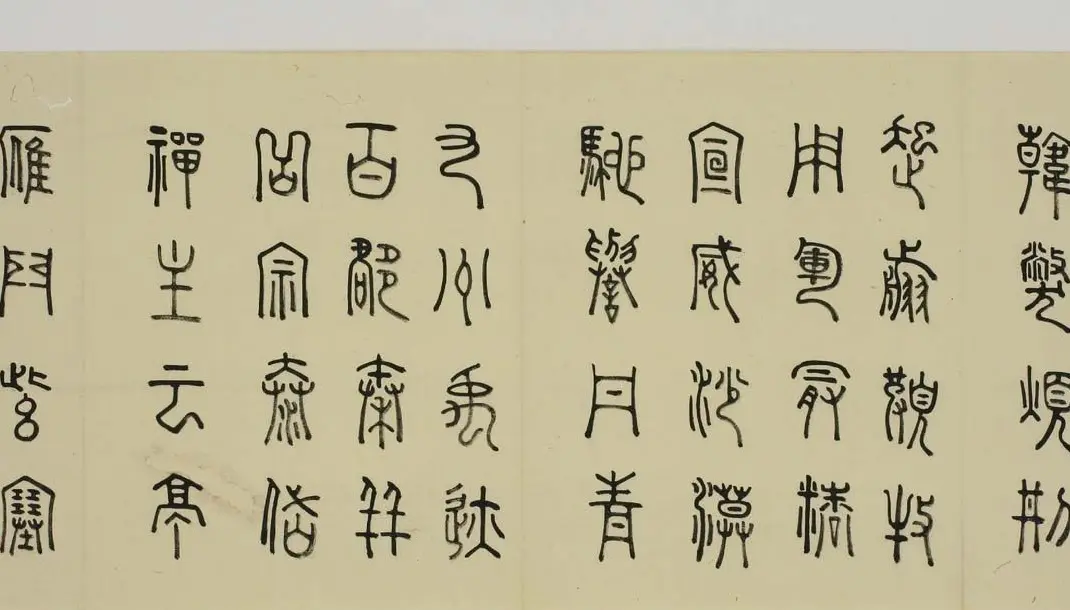 韓弊煩刑
起翦頗牧
用軍最精
宣威沙漠
馳譽丹青
九州禹迹
百郡秦并
岳宗泰岱
禪主云亭
雁門紫塞